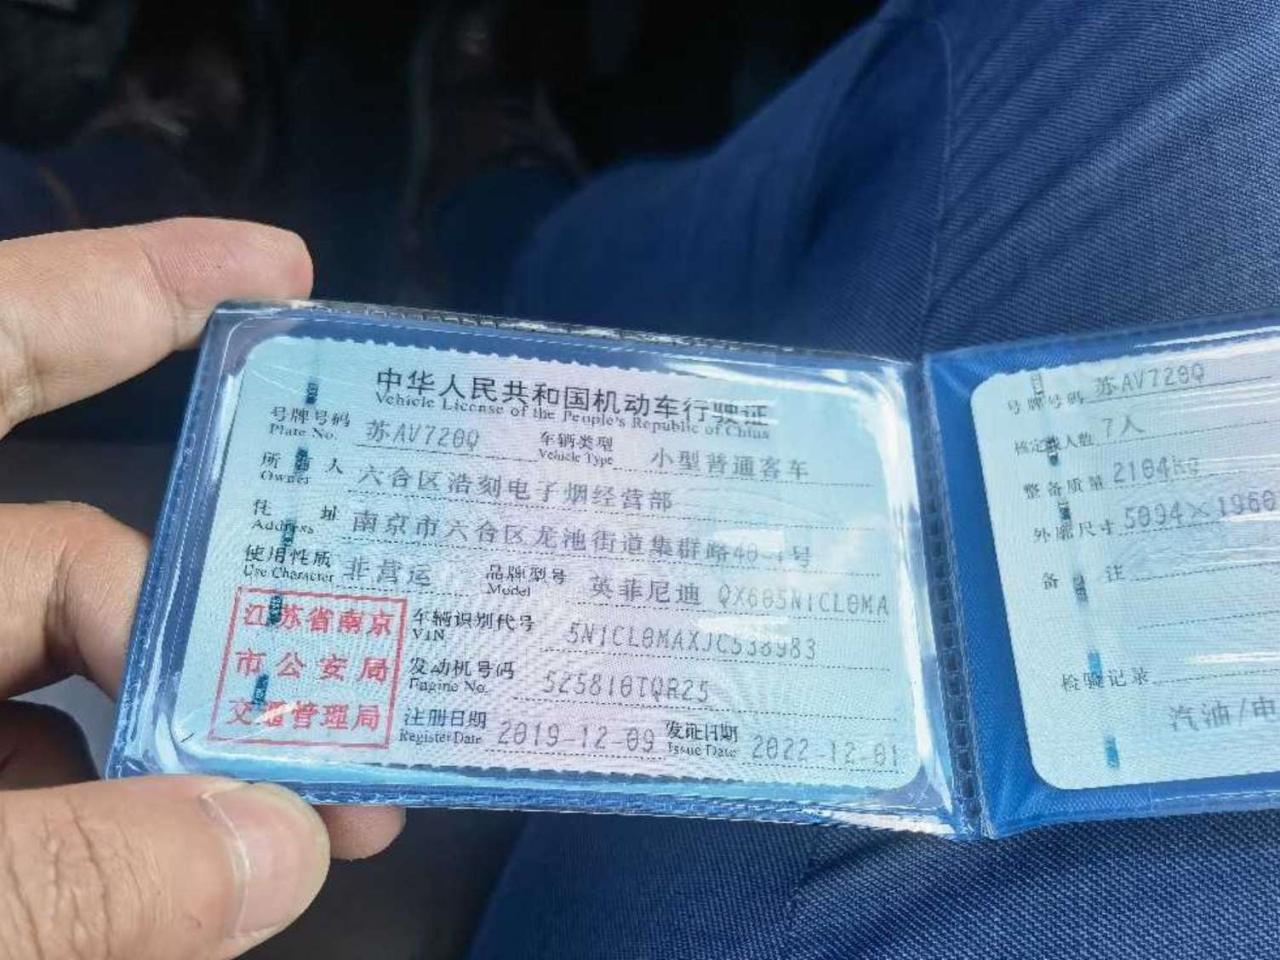 中华人民共和国机动车行驶证
Vehicle License of the People's Republic of China
号牌号码 苏AV720Q 车辆类型 小型普通客车
Plate No. Vehicle Type
所有人 六合区浩刻电子烟经营部
Owner
住址 南京市六合区龙池街道集群路40-1号
Address
使用性质 非营运 品牌型号 英菲尼迪 QX605N1CL0MA
Use Character Model
江苏省南京
市公安局
交通管理局
车辆识别代号 5N1CL0MAXJC538983
VIN
发动机号码 525810TQR25
Engine No.
注册日期 2019-12-09 发证日期 2022-12-01
Register Date Issue Date
号牌号码 苏AV720Q
核定载人数 7人
整备质量 2104kg
外廓尺寸 5094×1960
备注
检验记录
汽油/电